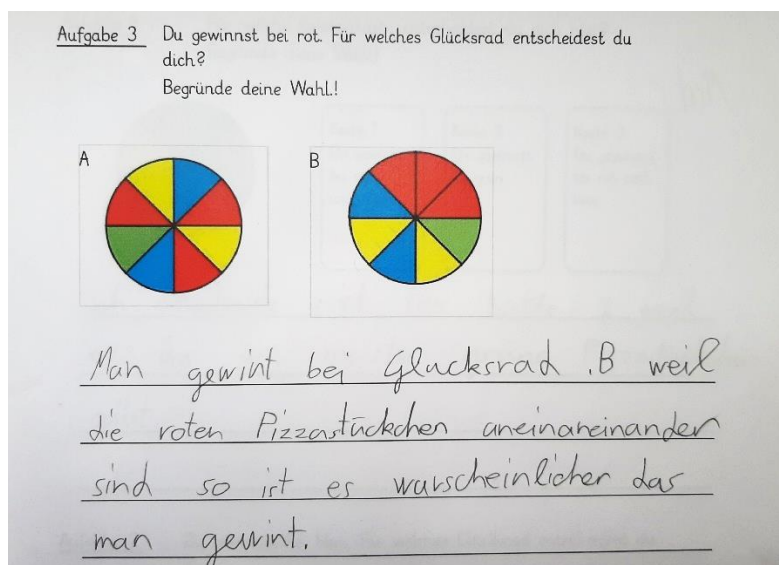 Aufgabe 3 Du gewinnst bei rot. Für welches Glücksrad entscheidest du
dich?
Begründe deine Wahl!
A
B
Man gewint bei Glucksrad .B weil
die roten Pizzastückchen aneinaneinander
sind so ist es warscheinlicher das
man gewint.